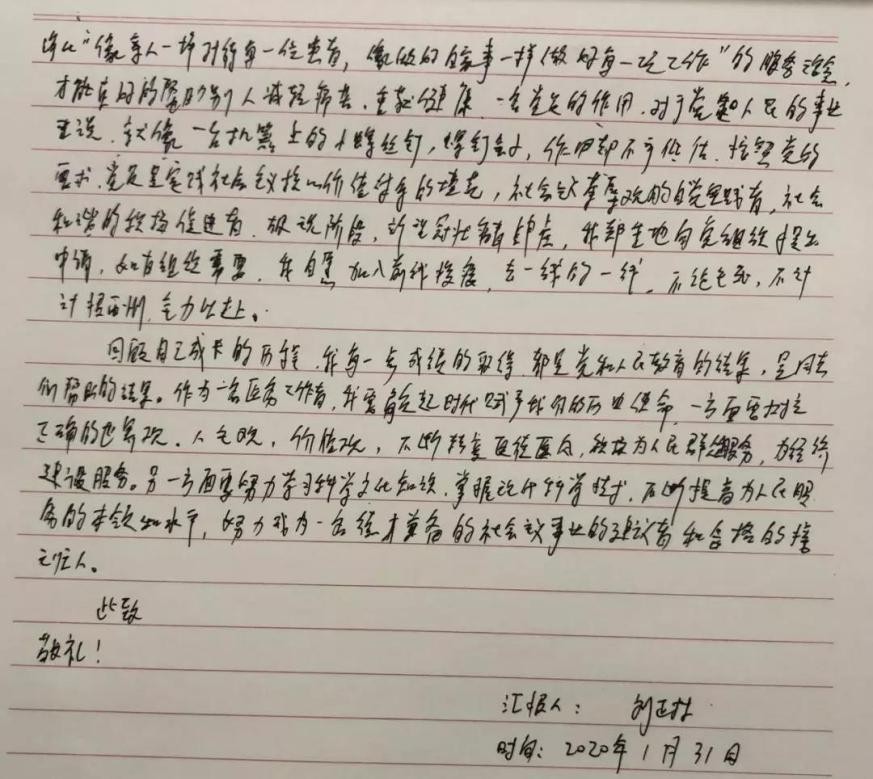 “像亲人一样对待每一位患者，像做的家事一样做好每一项工作”的服务理念，
才能真正的帮助别人减轻病苦。一名党员的作用，对于党和人民的事业
来说，就像一台机器上的小螺丝钉，螺钉虽小，作用却不可低估。按照党的
要求，党员是实践社会主义核心价值体系的模范，社会主义荣辱观的自觉实践者，社会
和谐的积极促进者。现阶段，新型冠状病毒肺炎，我郑重地向党组织提出
申请，如有组织需要，我自愿加入前线疫，去一线的一线，不论生死，不计
计报酬，全力以赴。
回顾自己成长的历程，我每一点成绩的取得，都是党和人民教育的结果，是同志
们帮助的结果。作为一名医务工作者，我要肩负起时代赋予我们的历史使命，一方面要树立
正确的世界观、人生观，价值观，不断精医，为人民群众服务，为经济
建设服务。另一方面要努力学习科学文化知识，掌握现代科学技术，不断提高为人民服
务的本领和水平，努力成为一名德才兼备的社会主义事业的建设者和合格的接
班人。
此致
敬礼！
汇报人：
时间：2020年1月31日